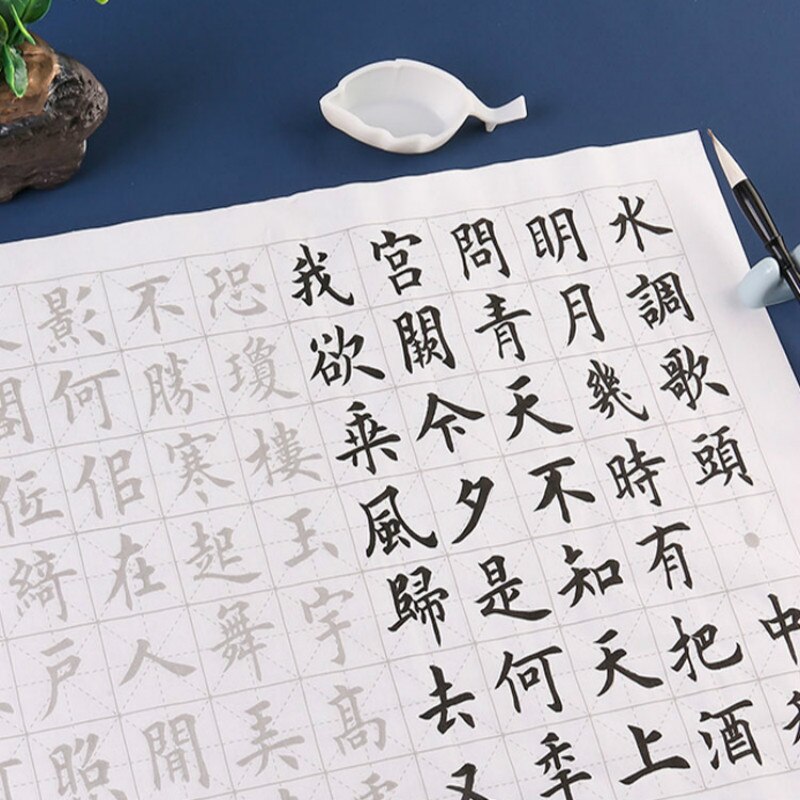 水調歌頭·中
明月幾時有把酒
問青天不知天上
宮闕今夕是何秊
我欲乘風歸去又
恐瓊樓玉宇高
不勝寒起舞弄
影何佀在人間
閣低綺戶照